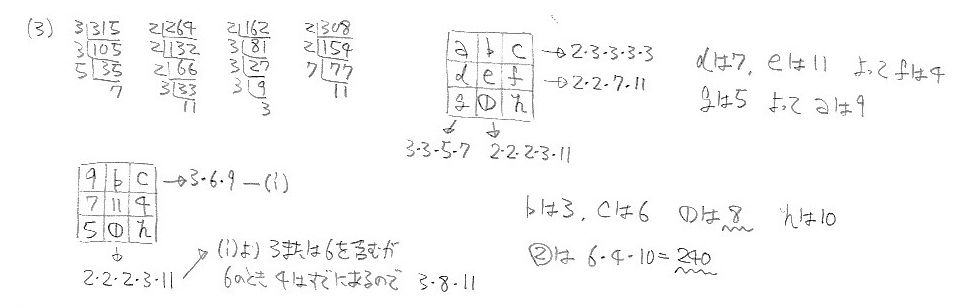 (3) 3)315 2)264 2)162 2)308
3)105 2)132 3)81 2)154
5)35 2)66 3)27 7)77
7 3)33 3)9 11
11 3
a b c →2・3・3・3・3
d e f →2・2・7・11
g ① h
3・3・5・7 2・2・2・3・11
dは7, eは11 よってfは4
gは5 よって aは9
9 b c →3・6・9 ―(i)
7 11 4
5 ① h
2・2・2・3・11
(i)より 3または6を含むが
6のとき 4はすでにあるので 3・8・11
bは3, cは6 ①は8 hは10
②は 6・4・10=240